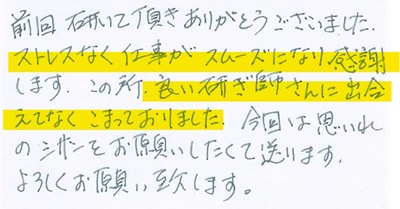 前回 研いで頂きありがとうございました.
ストレスなく仕事がスムーズになり感謝
します. この所. 良い研ぎ師さんに出会
えてなく こまっておりました. 今回は思い入れ
のシザーをお願いしたくて送ります.
よろしくお願い致します。